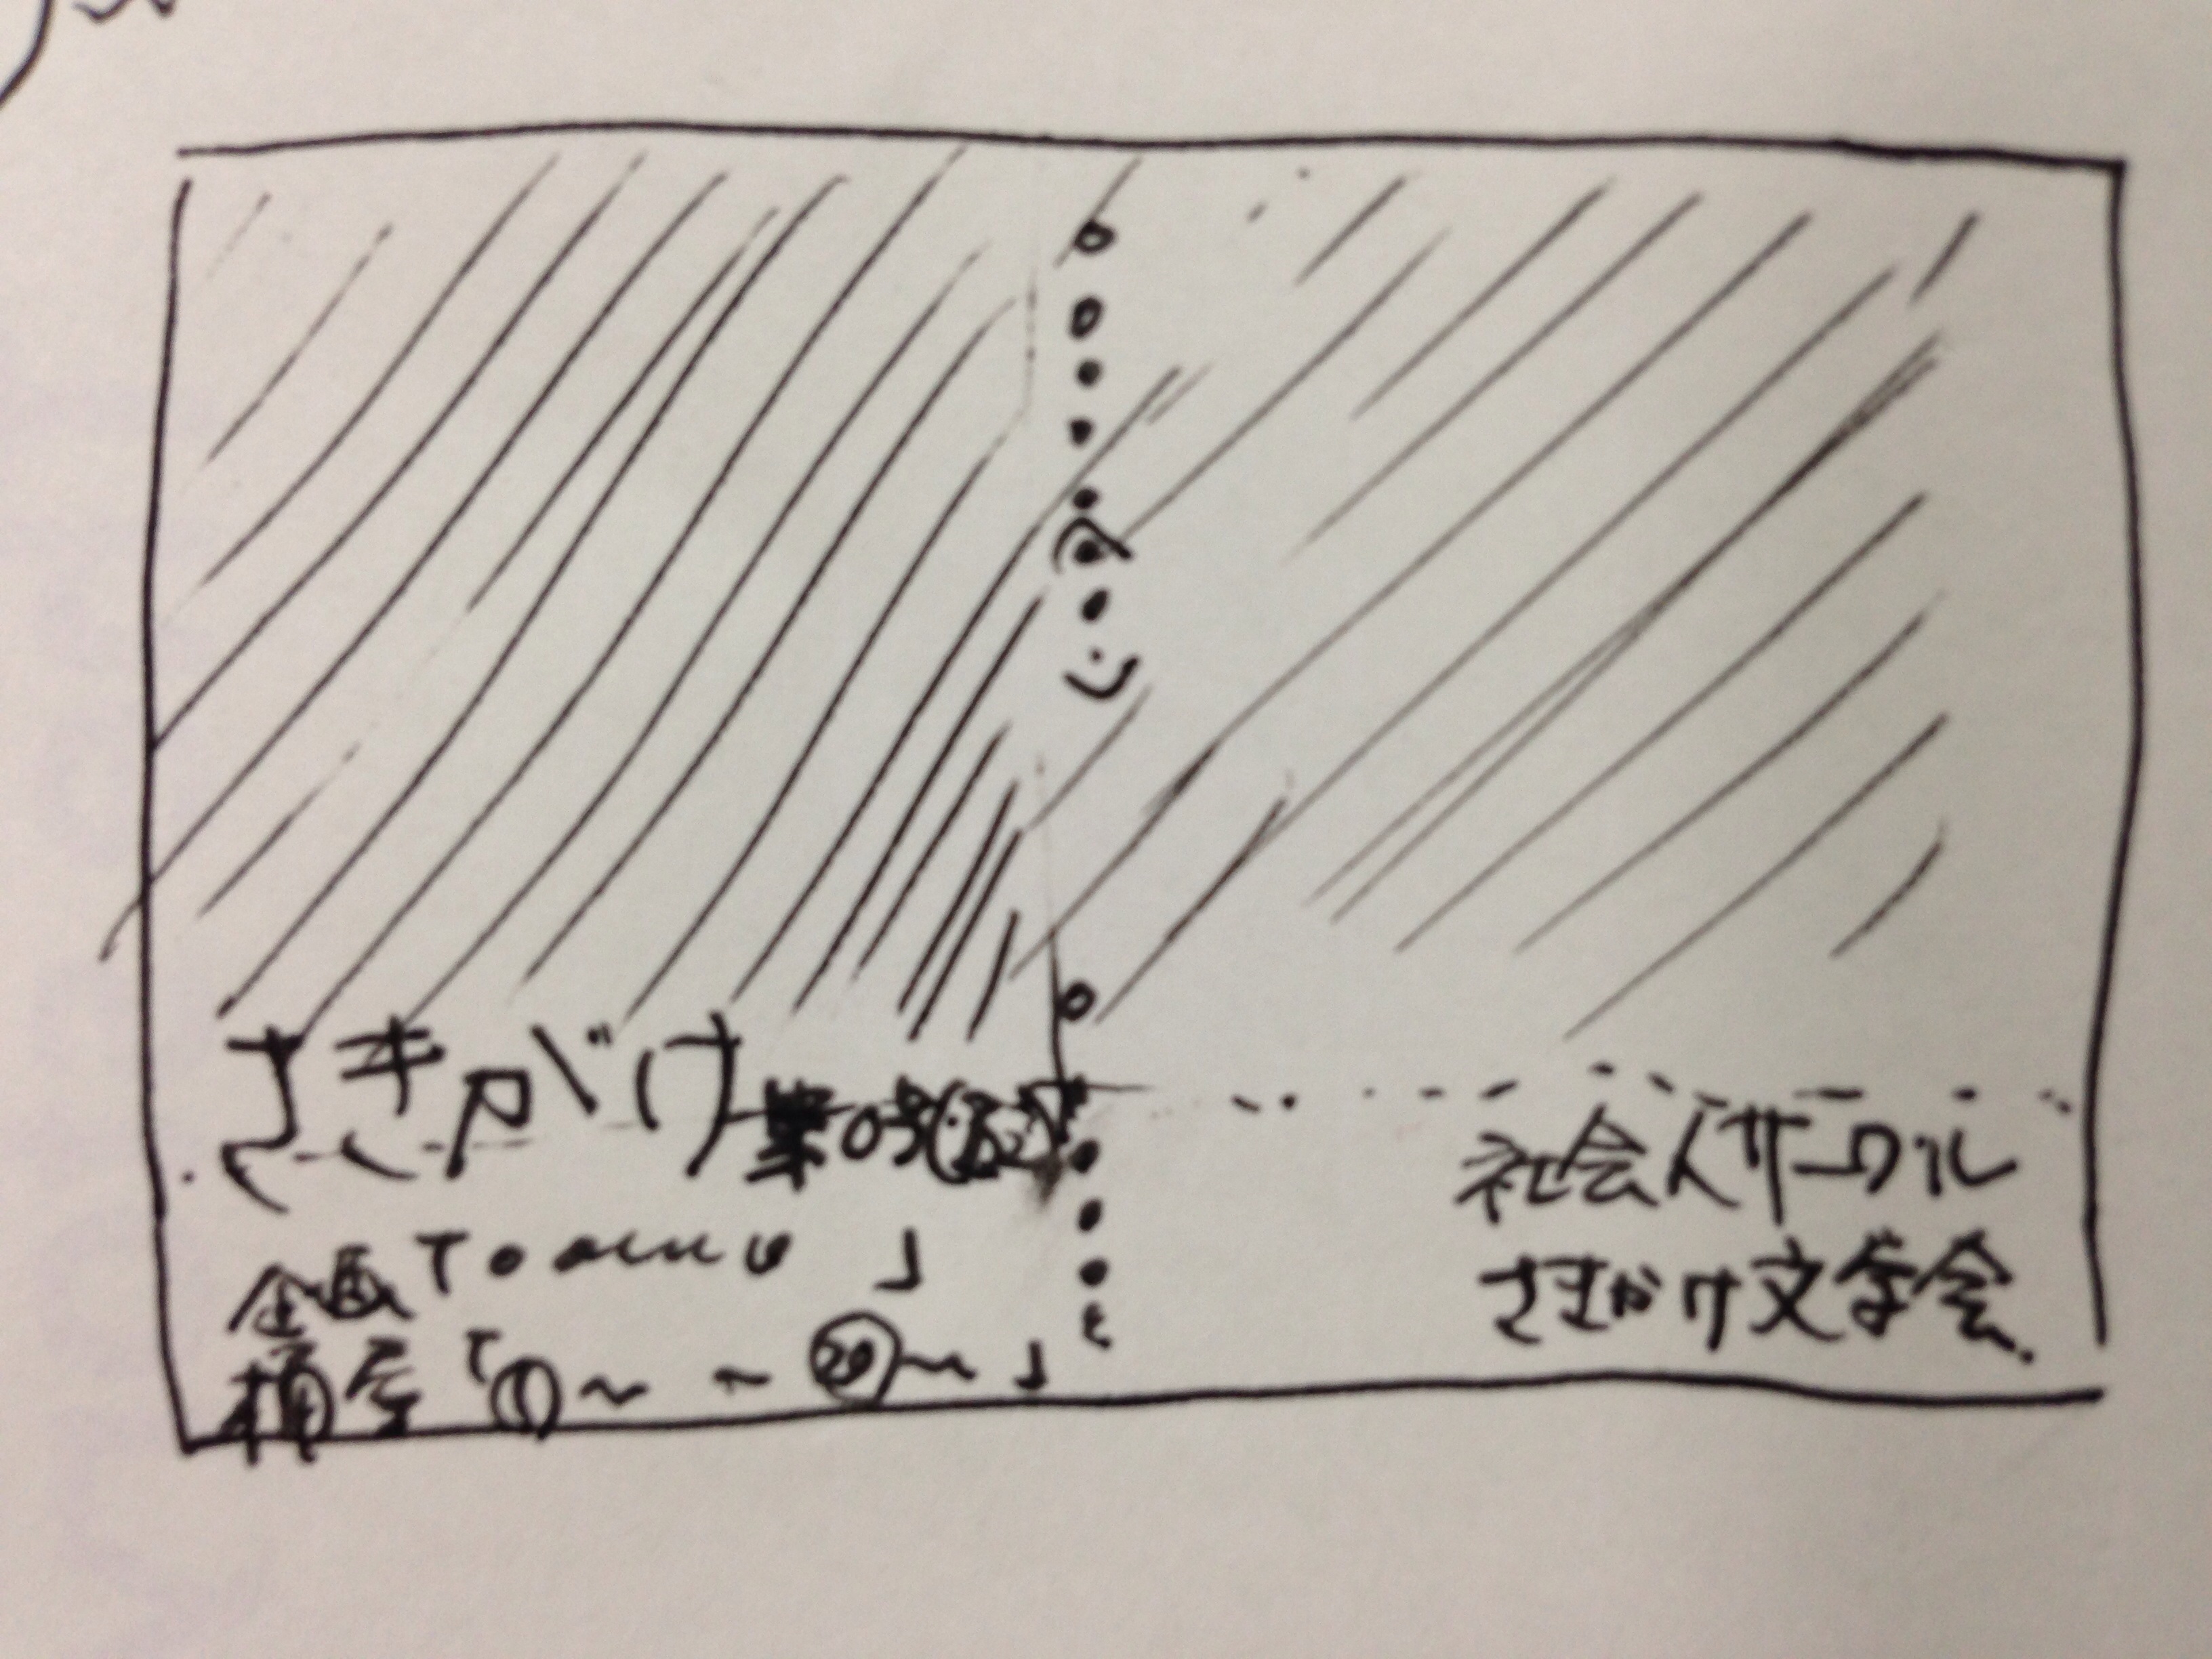 さきがけ 第0号
企画「 」
構号「① ～ ～ ⑳～」
社会人サークル
さきがけ文学会